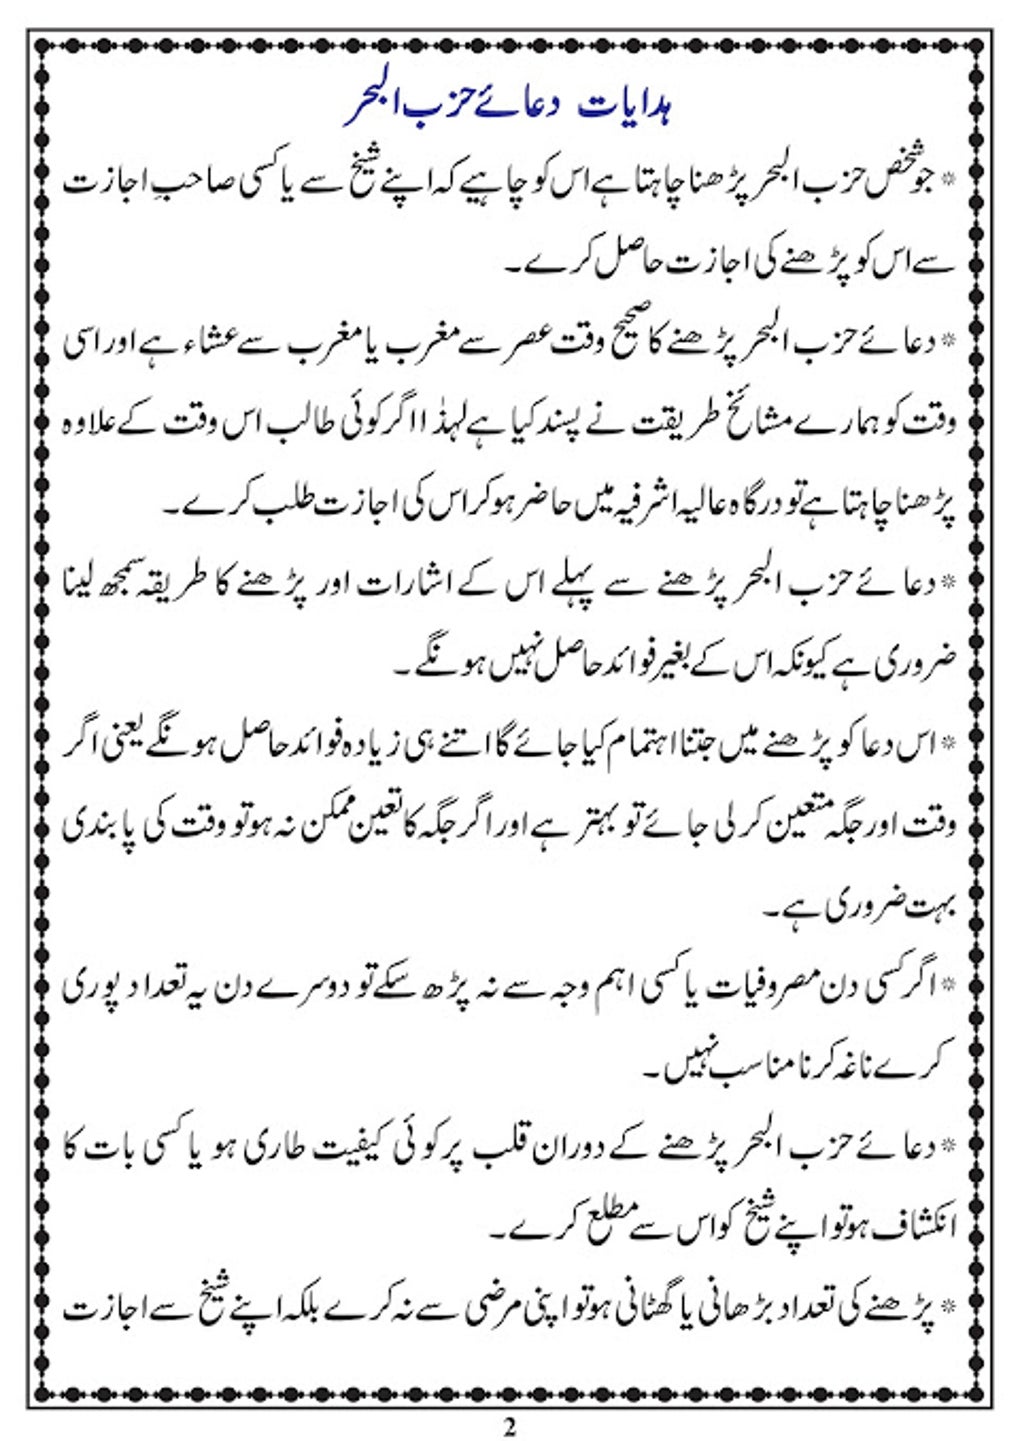 ہدایات دعائے حزب البحر
* جو شخص حزب البحر پڑھنا چاہتا ہے اس کو چاہیے کہ اپنے شیخ سے یا کسی صاحبِ اجازت
سے اس کو پڑھنے کی اجازت حاصل کرے۔
* دعائے حزب البحر پڑھنے کا صحیح وقت عصر سے مغرب یا مغرب سے عشاء ہے اور اسی
وقت کو ہمارے مشائخ طریقت نے پسند کیا ہے لہذٰا اگر کوئی طالب اس وقت کے علاوہ
پڑھنا چاہتا ہے تو درگاہ عالیہ اشرفیہ میں حاضر ہو کر اس کی اجازت طلب کرے۔
* دعائے حزب البحر پڑھنے سے پہلے اس کے اشارات اور پڑھنے کا طریقہ سمجھ لینا
ضروری ہے کیونکہ اس کے بغیر فوائد حاصل نہیں ہونگے۔
* اس دعا کو پڑھنے میں جتنا اہتمام کیا جائے گا اتنے ہی زیادہ فوائد حاصل ہونگے یعنی اگر
وقت اور جگہ متعین کر لی جائے تو بہتر ہے اور اگر جگہ کا تعین ممکن نہ ہو تو وقت کی پابندی
بہت ضروری ہے۔
* اگر کسی دن مصروفیات یا کسی اہم وجہ سے نہ پڑھ سکے تو دوسرے دن یہ تعداد پوری
کرے ناغہ کرنا مناسب نہیں۔
* دعائے حزب البحر پڑھنے کے دوران قلب پر کوئی کیفیت طاری ہو یا کسی بات کا
انکشاف ہو تو اپنے شیخ کو اس سے مطلع کرے۔
* پڑھنے کی تعداد بڑھانی یا گھٹانی ہو تو اپنی مرضی سے نہ کرے بلکہ اپنے شیخ سے اجازت
2